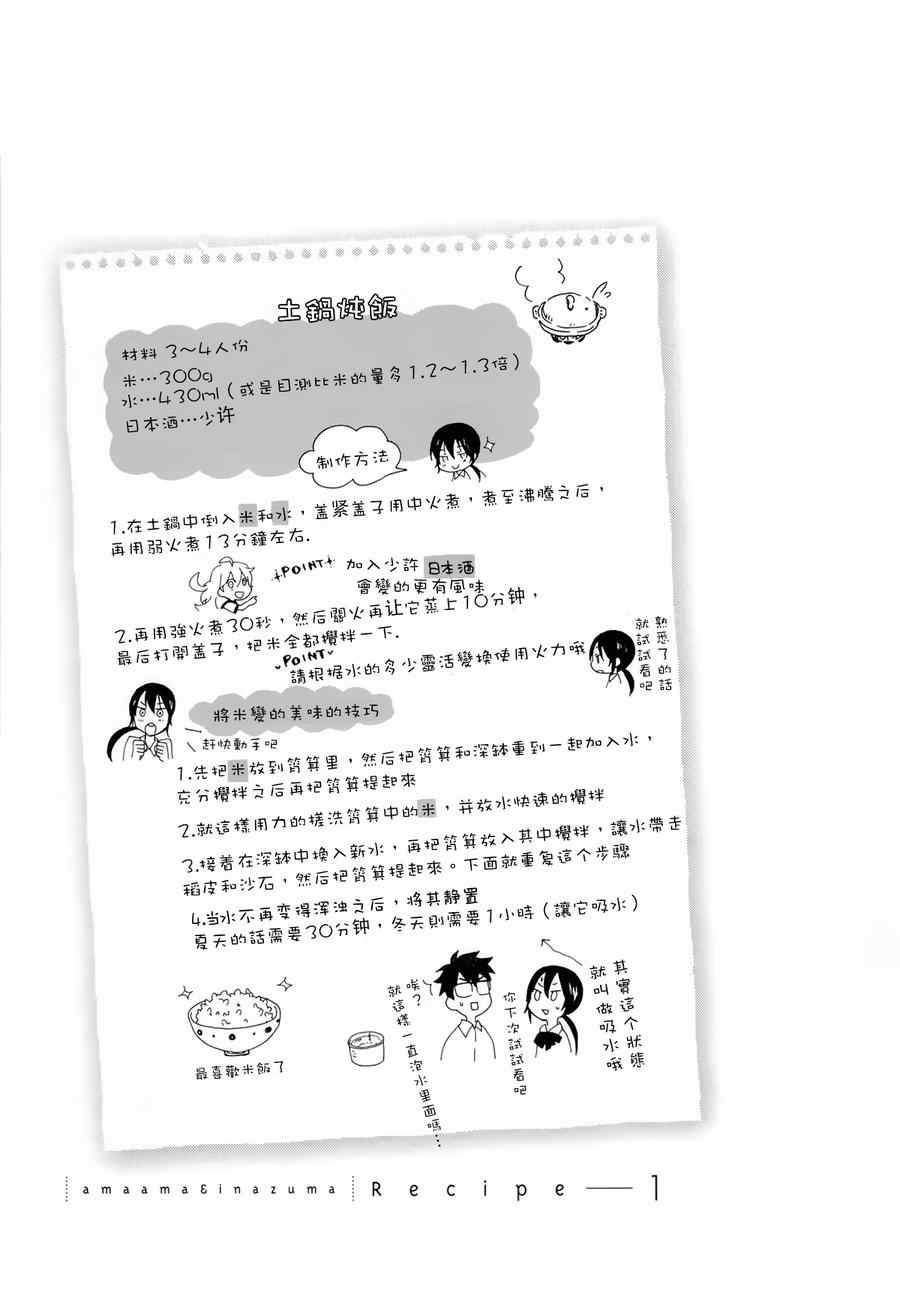 土鍋炖飯
材料 3～4人份
米…300g
水…430ml（或是目測比米的量多1.2～1.3倍）
日本酒…少许
制作方法
1.在土鍋中倒入米和水，盖紧盖子用中火煮，煮至沸騰之后，
再用弱火煮13分鐘左右.
POINT 加入少許日本酒
會變的更有風味
2.再用強火煮30秒，然后關火再让它蒸上10分钟，
最后打開盖子，把米全都攪拌一下.
POINT
請根据水的多少靈活變換使用火力哦
熟悉了的話
就試試看吧
將米變的美味的技巧
赶快動手吧
1.先把米放到筲箕里，然后把筲箕和深缽重到一起加入水，
充分攪拌之后再把筲箕提起來
2.就這樣用力的搓洗筲箕中的米，并放水快速的攪拌
3.接着在深缽中換入新水，再把筲箕放入其中攪拌，讓水帶走
稻皮和沙石，然后把筲箕提起來。下面就重复這个步驟
4.当水不再变得浑浊之后，將其静置
夏天的話需要30分钟，冬天則需要1小時（讓它吸水）
其實這个狀態
就叫做吸水哦
你下次試試看吧
唉？
就這樣一直泡水里面嗎…
最喜歡米飯了
amaama&inazuma Recipe — 1